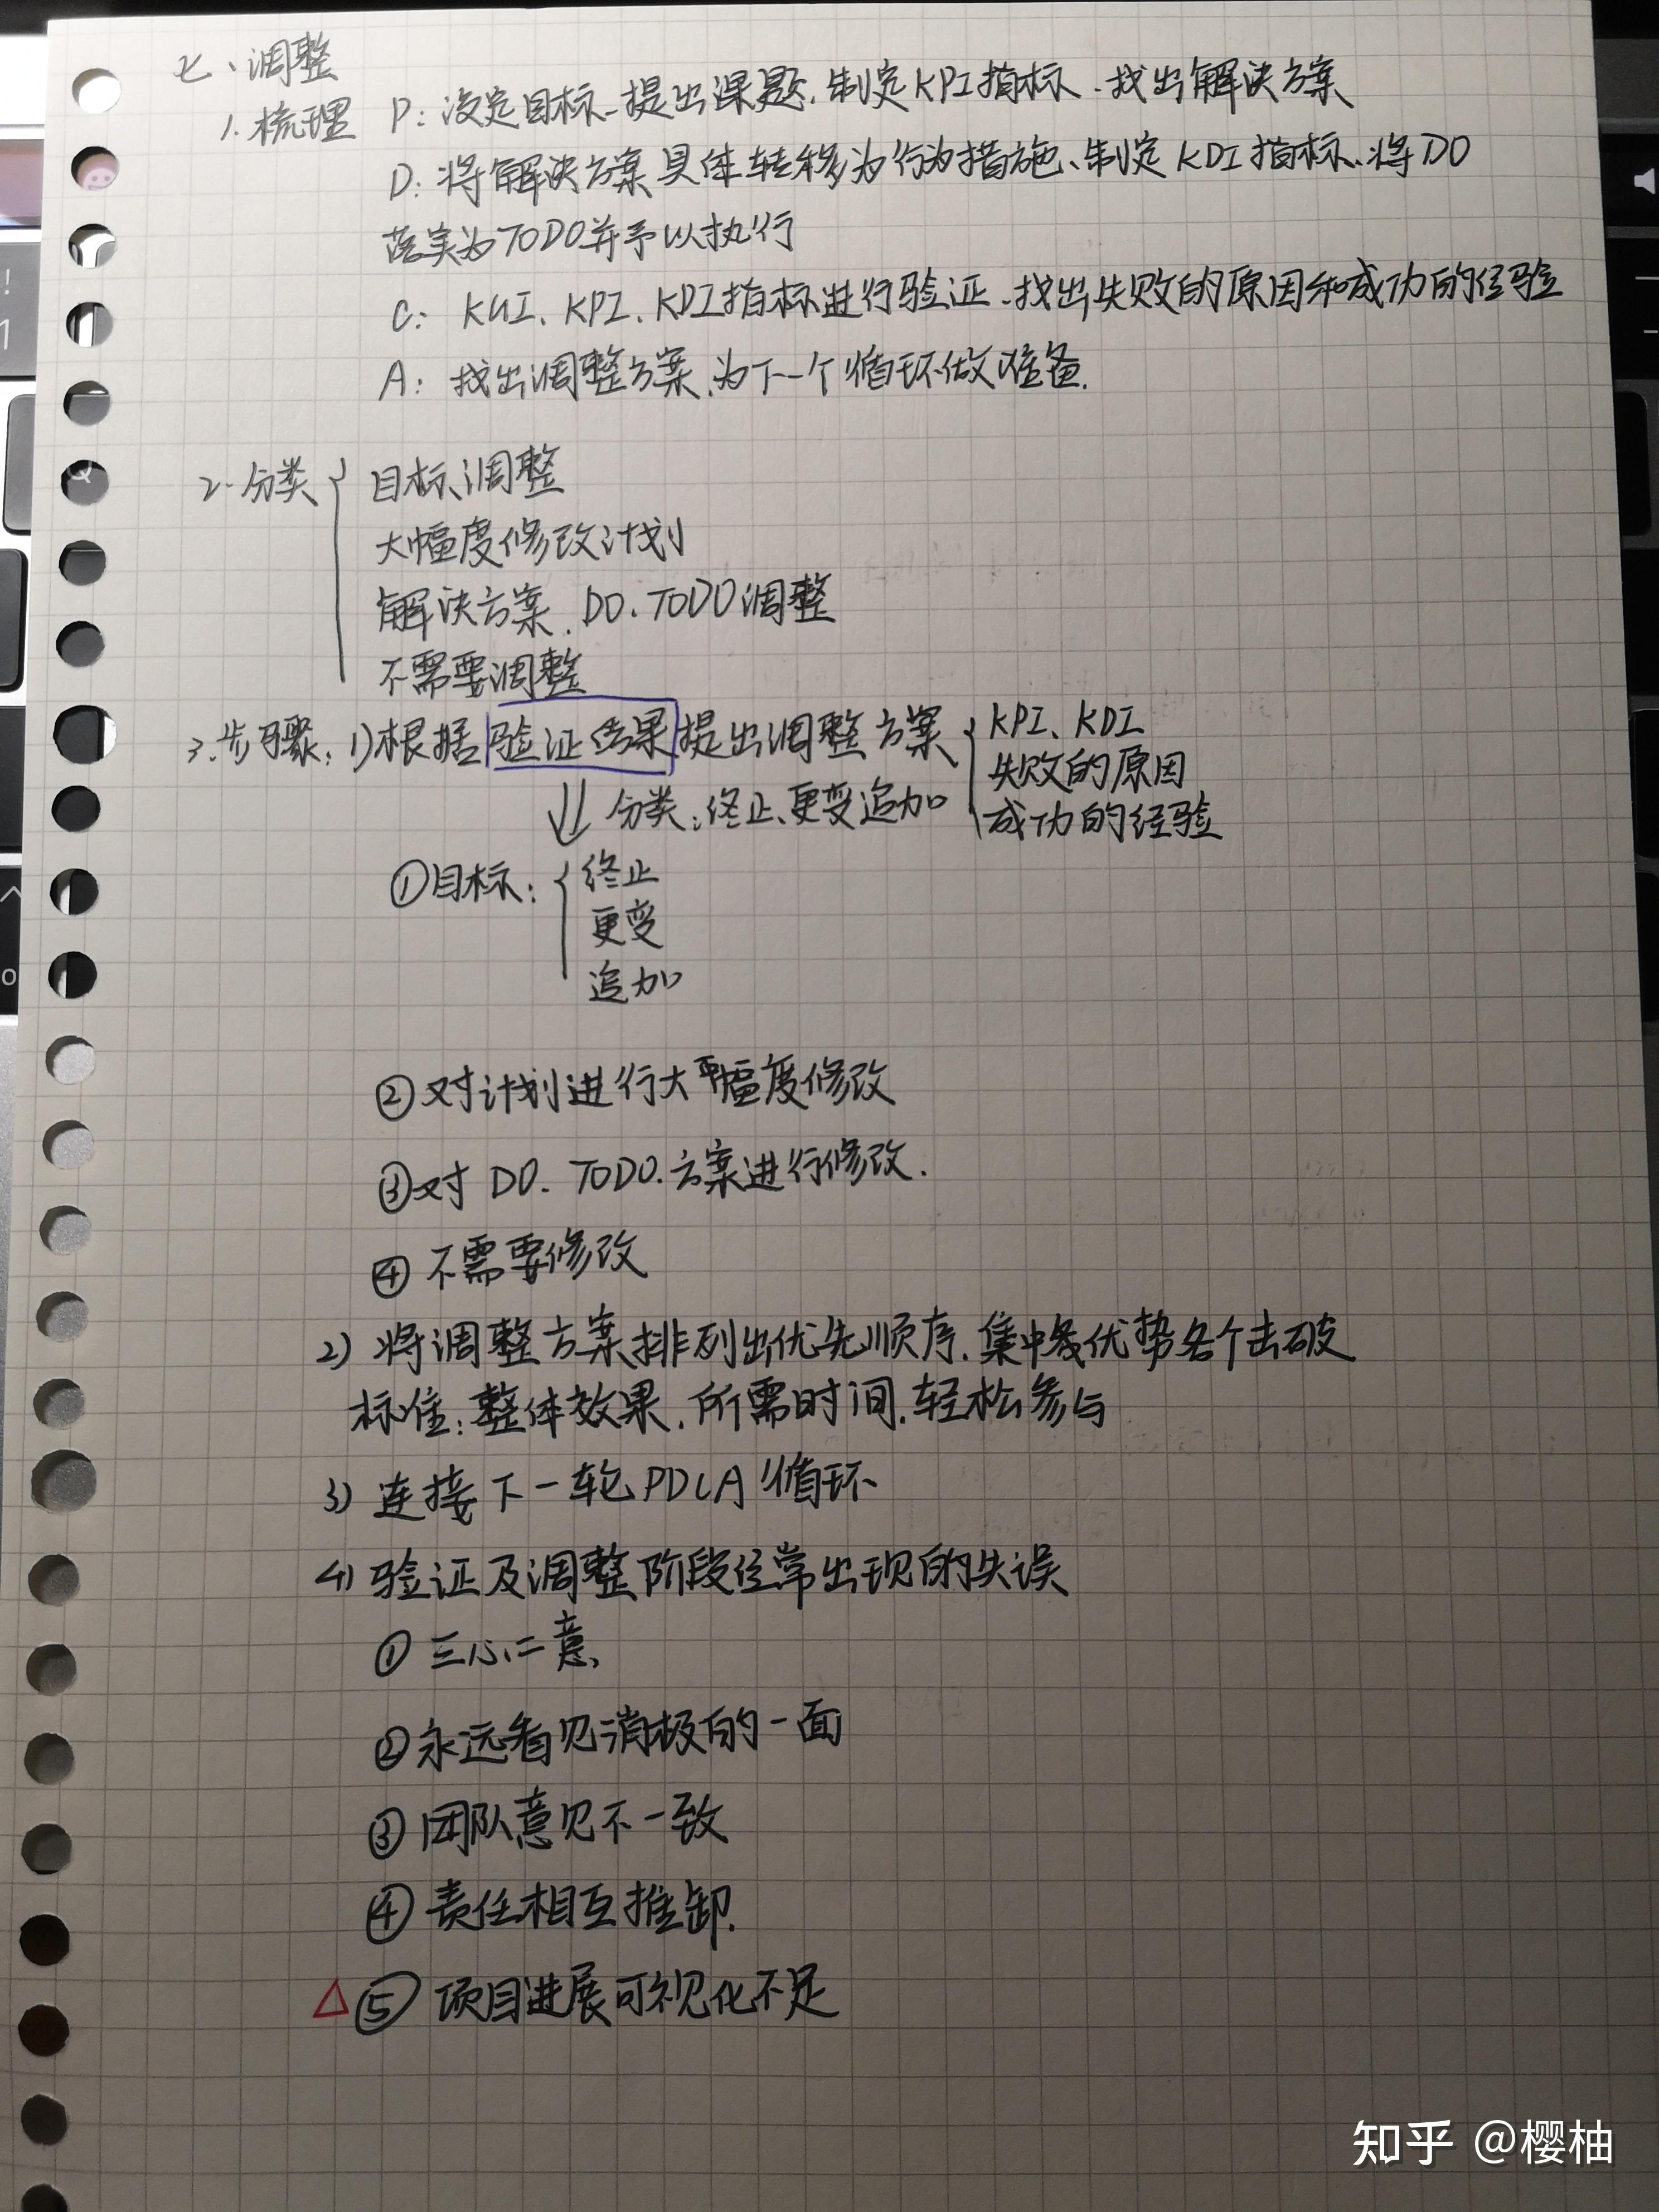 七、调整
1.梳理 P:设定目标、提出课题、制定KPI指标、找出解决方案
D:将解决方案具体转移为行为措施、制定KDI指标、将DO
落实为TODO并予以执行
C: KGI、KPI、KDI指标进行验证、找出失败的原因和成功的经验
A:找出调整方案、为下一个循环做准备.
2.分类 目标调整
大幅度修改计划
解决方案、DO、TODO调整
不需要调整
3.步骤:1)根据验证结果提出调整方案 KPI、KDI
失败的原因
分类:终止、更变追加 成功的经验
①目标: 终止
更变
追加
②对计划进行大幅度修改
③对DO、TODO、方案进行修改.
④不需要修改
2)将调整方案排列出优先顺序、集中优势各个击破
标准:整体效果、所需时间、轻松参与
3)连接下一轮PDCA循环
4)验证及调整阶段经常出现的失误
①三心二意
②永远看见消极的一面
③团队意见不一致
④责任相互推卸.
△⑤项目进展可视化不足
知乎 @樱柚